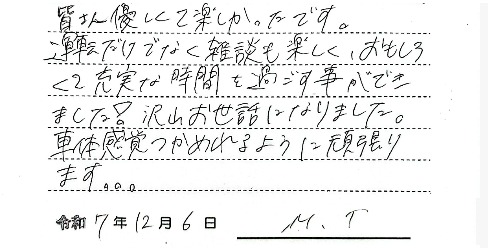 皆さん優しくて楽しかったです。
運転だけでなく雑談も楽しく、おもしろ
くて充実な時間を過ごす事ができ
ました? 沢山お世話になりました。
車体感覚つかめれるように頑張り
ます。。。
令和 7年12月6日 M.T